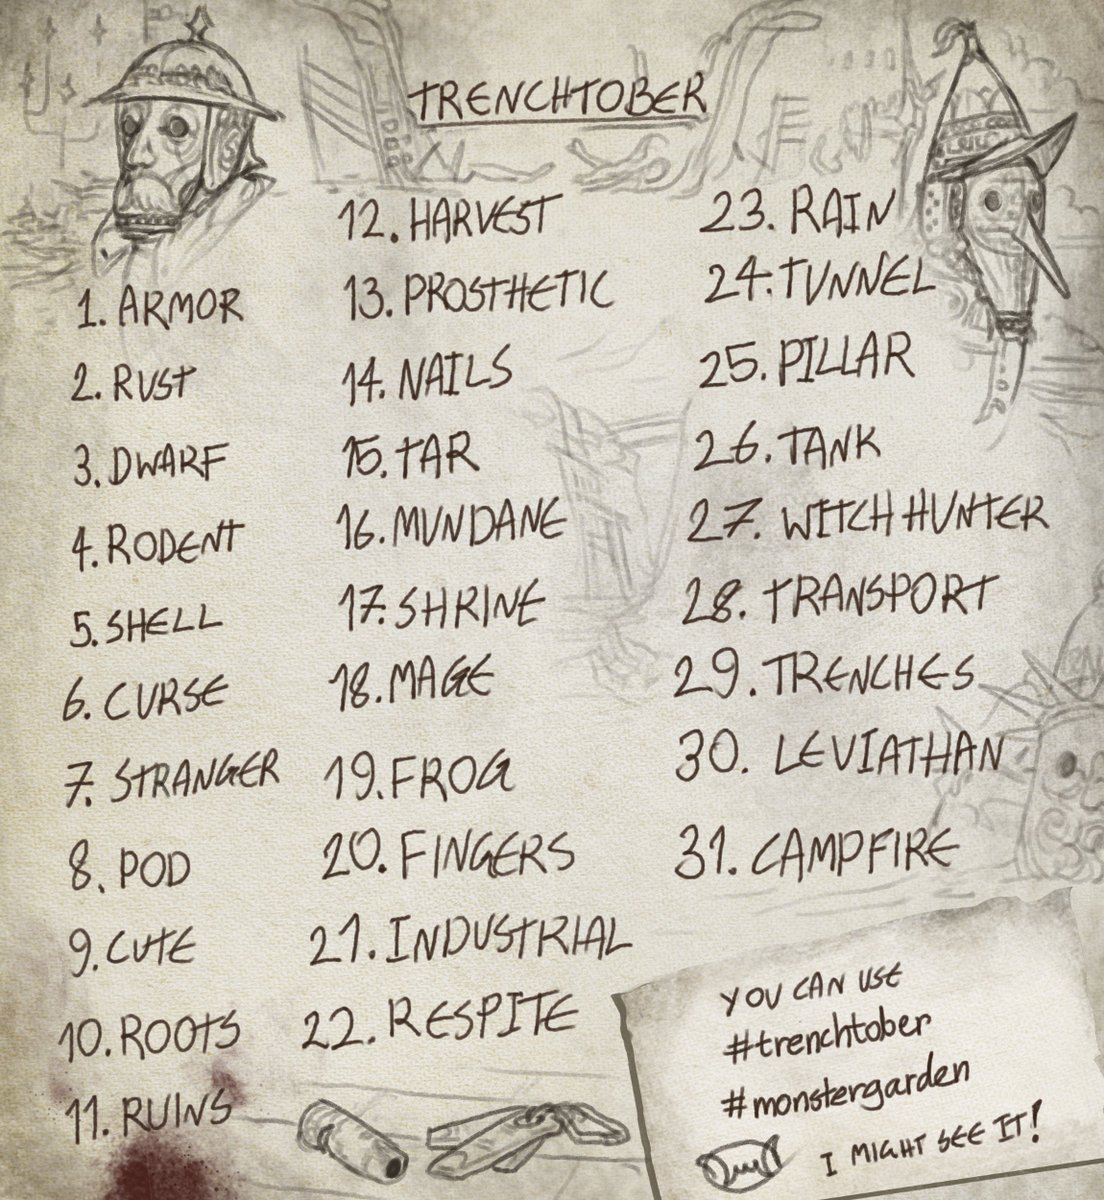 TRENCHTOBER
1. ARMOR
2. RUST
3. DWARF
4. RODENT
5. SHELL
6. CURSE
7. STRANGER
8. POD
9. CUTE
10. ROOTS
11. RUINS
12. HARVEST
13. PROSTHETIC
14. NAILS
15. TAR
16. MUNDANE
17. SHRINE
18. MAGE
19. FROG
20. FINGERS
21. INDUSTRIAL
22. RESPITE
23. RAIN
24. TUNNEL
25. PILLAR
26. TANK
27. WITCH HUNTER
28. TRANSPORT
29. TRENCHES
30. LEVIATHAN
31. CAMPFIRE
YOU CAN USE
#trenchtober
#monstergarden
I MIGHT SEE IT!